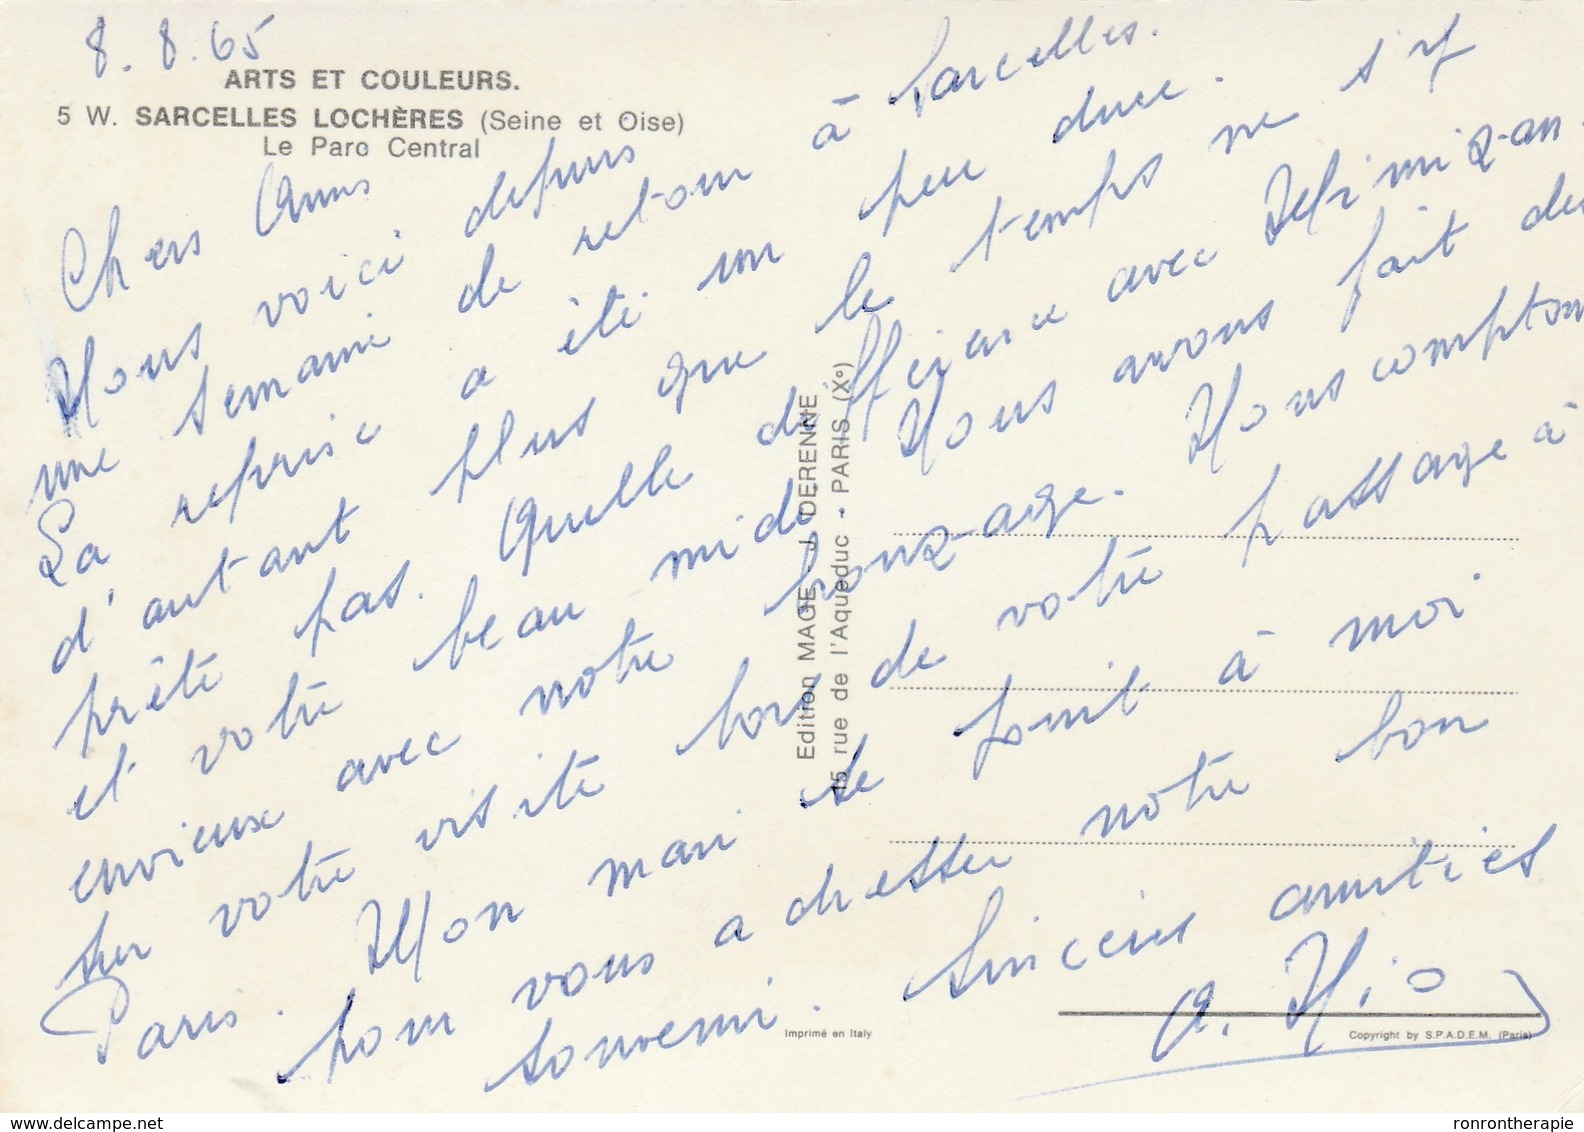 8.8.65
ARTS ET COULEURS.
5 W. SARCELLES LOCHÈRES (Seine et Oise)
Le Parc Central
Chers Amis
Nous voici depuis
une semaine de retour à Sarcelles.
La reprise a été un peu dure.
d'autant plus que le temps ne s'y
prête pas. Quelle différence avec Mimizan
et votre beau midi. Nous avons fait des
envieux avec notre bronzage. Nous comptons
sur votre visite lors de votre passage à
Paris. Mon mari se joint à moi
pour vous adresser notre bon
souvenir. Sincères amitiés
Edition MAGE - J. DERENNE
15 rue de l'Aqueduc - PARIS (Xe)
Imprimé en Italy
Copyright by S.P.A.D.E.M. (Paris)
www.delcampe.net
ronrontherapie